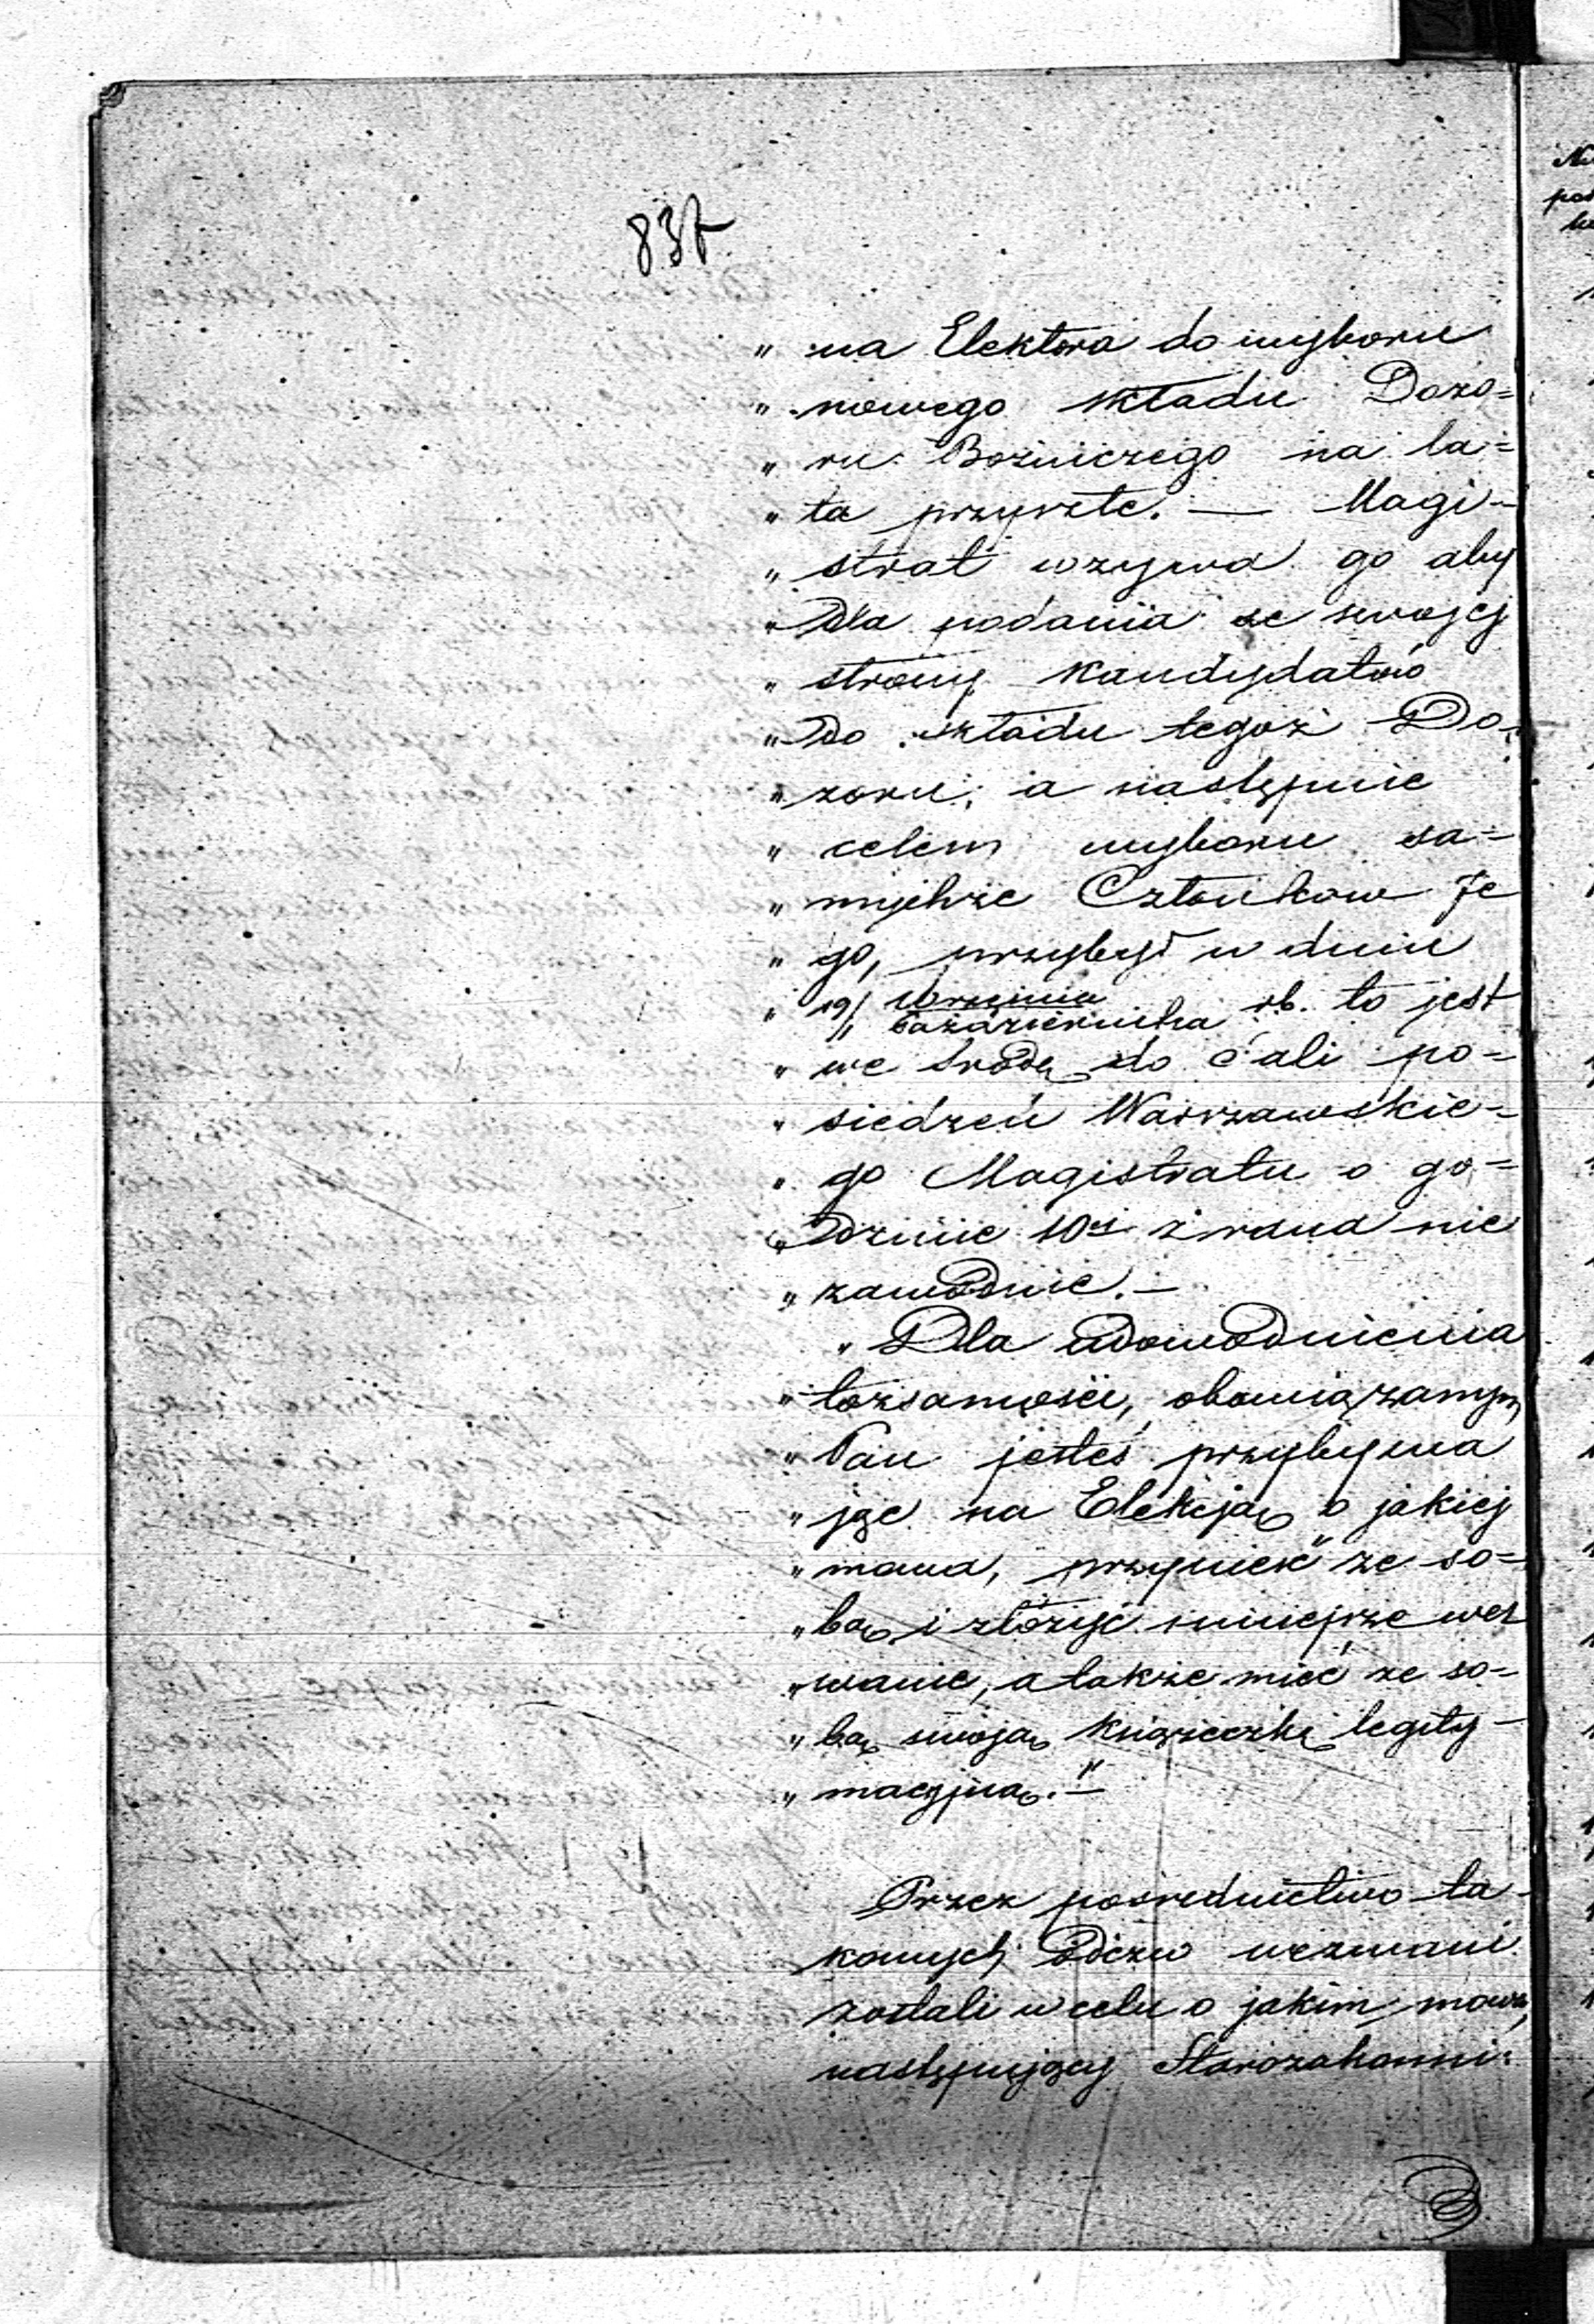 837
„ na Elektora do wyboru
„ nowego składu Dozo=
„ ru Bożniczego na la=
„ ta przyszłe. — Magi-
„ strat wzywa go aby
„ dla podania ze swojej
„ strony kandydatów
„ do składu tegoż Do
„ zoru, a następnie
„ celem wyboru sa=
„ mychże Członków Je
„ go, przybył w dniu
„ 19/1 Września/Października rb. to jest
„ we Środę do Sali po=
„ siedzeń Warszawskie=
„ go Magistratu o go=
„ dzinie 10ej z rana nie
„ zawodnie. —
„ Dla udowodnienia
„ tożsamości, obowiązanym
„ Pan jesteś przybywa
„ jąc na Elekcją o jakiej
„ mowa, przynieść ze so=
„ bą i złożyć niniejsze wez
„ wanie, a także mieć ze so=
„ bą swoją książeczkę legity-
„ macyjną. — "
Przez pośrednictwo ta-
kowych Odezw wezwani
zostali w celu o jakim mowa,
następujący Starozakonni: